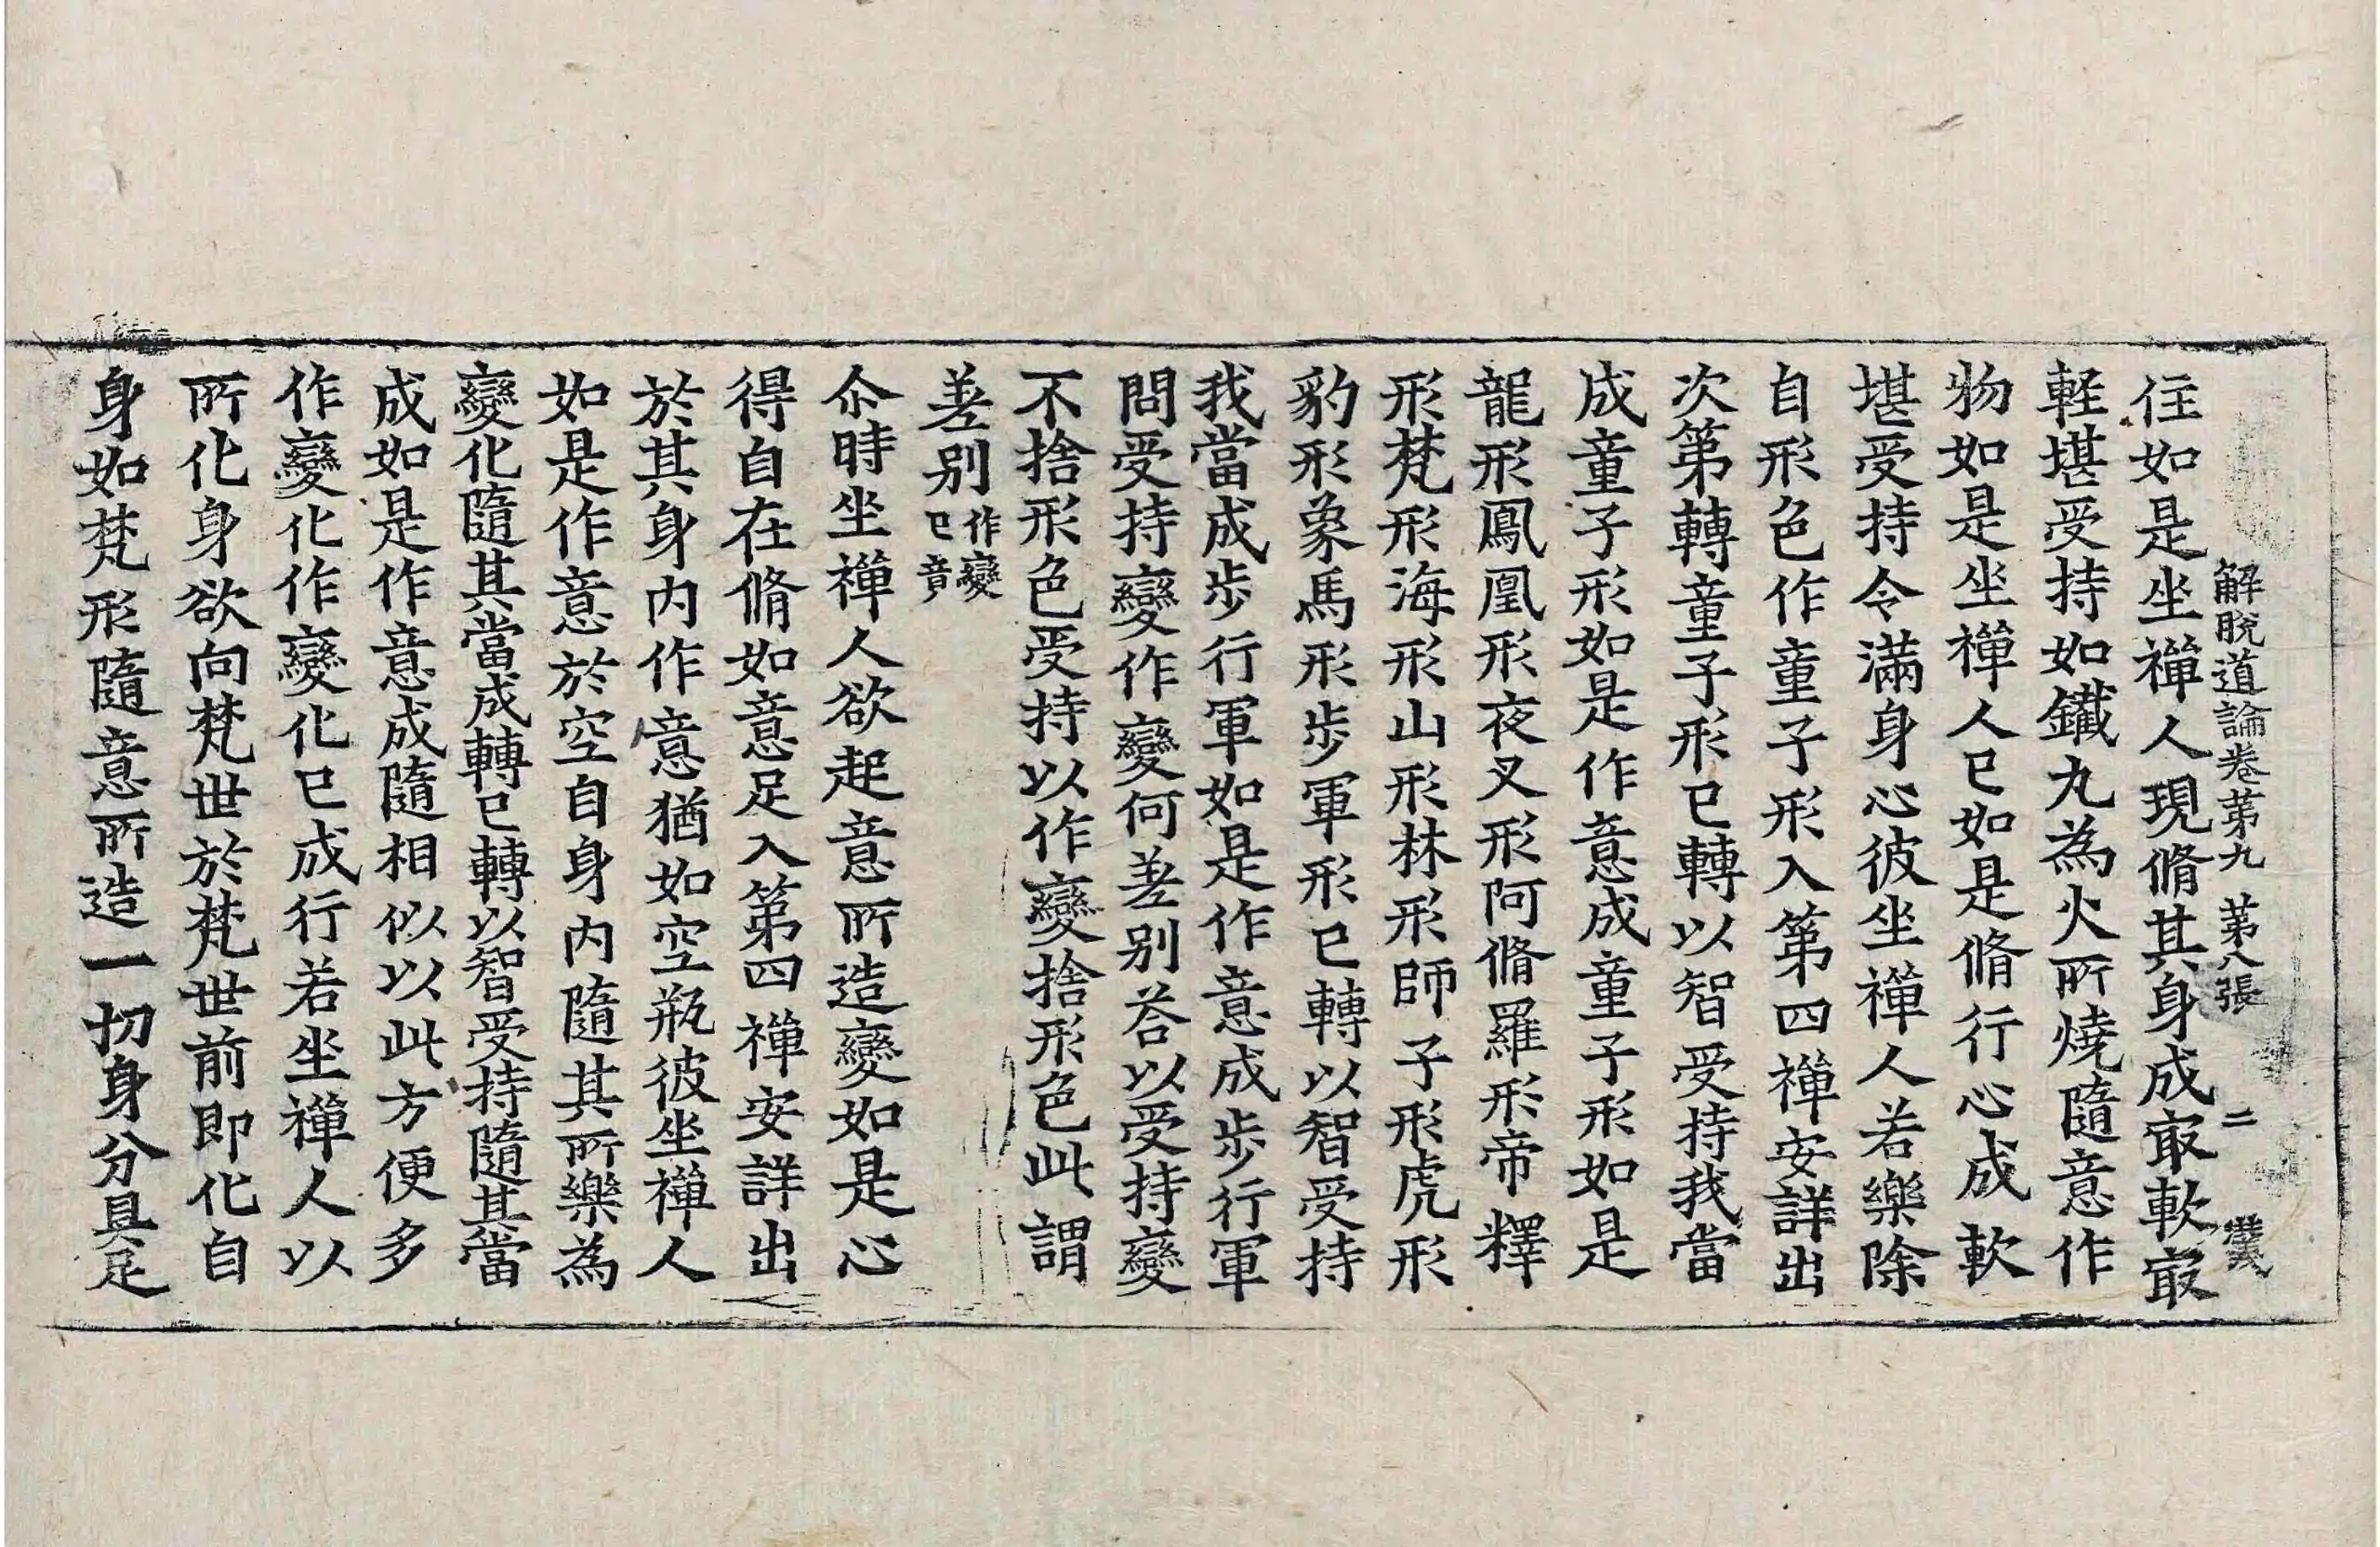 解脫道論卷第九 第八張 二
住如是坐禪人現脩其身成㝡軟㝡
軽堪受持如鐵丸為火所燒隨意作
物如是坐禪人已如是脩行心成軟
堪受持令滿身心彼坐禪人若樂除
自形色作童子形入第四禪安詳出
次第轉童子形已轉以智受持我當
成童子形如是作意成童子形如是
龍形鳳凰形夜叉形阿脩羅形帝釋
形梵形海形山形林形師子形虎形
豹形象馬形步軍形已轉以智受持
我當成步行軍如是作意成步行軍
問受持變作變何差別荅以受持變
不捨形色受持以作變捨形色此謂
差別作變已竟
尒時坐禪人欲起意所造變如是心
得自在脩如意足入第四禪安詳出
於其身內作意猶如空瓶彼坐禪人
如是作意於空自身內隨其所樂為
變化隨其當成轉已轉以智受持隨其當
成如是作意成隨相似以此方便多
作變化作變化已成行若坐禪人以
所化身欲向梵世於梵世前即化自
身如梵形隨意所造一切身分具足